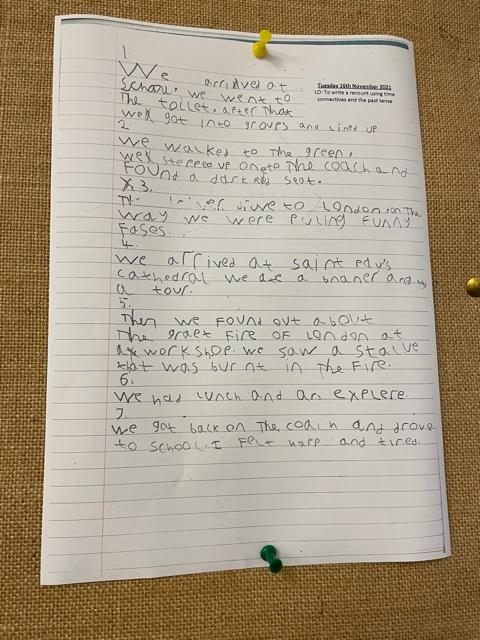 1
We arrived at
School, we went to
Tuesday 16th November 2021
LO: To write a recount using time
connectives and the past tense
The toilet, after That
we got into groups and lined up.
2
We walked to The green,
we stepped up oneto The coach and
Found a dark red seat.
3.
The driver drive to London, on The
way we were puling Funny
Fases.
4.
we arrived at saint
cathedral. we ate a and
a tour.
5.
Then we Found out about
The graet Fire OF London at
a work shope. we saw a statue
that was burnt in The Fire.
6.
we had lunch and an explere.
7.
we got back on The coach and drove
to School. I Felt happ and tired.